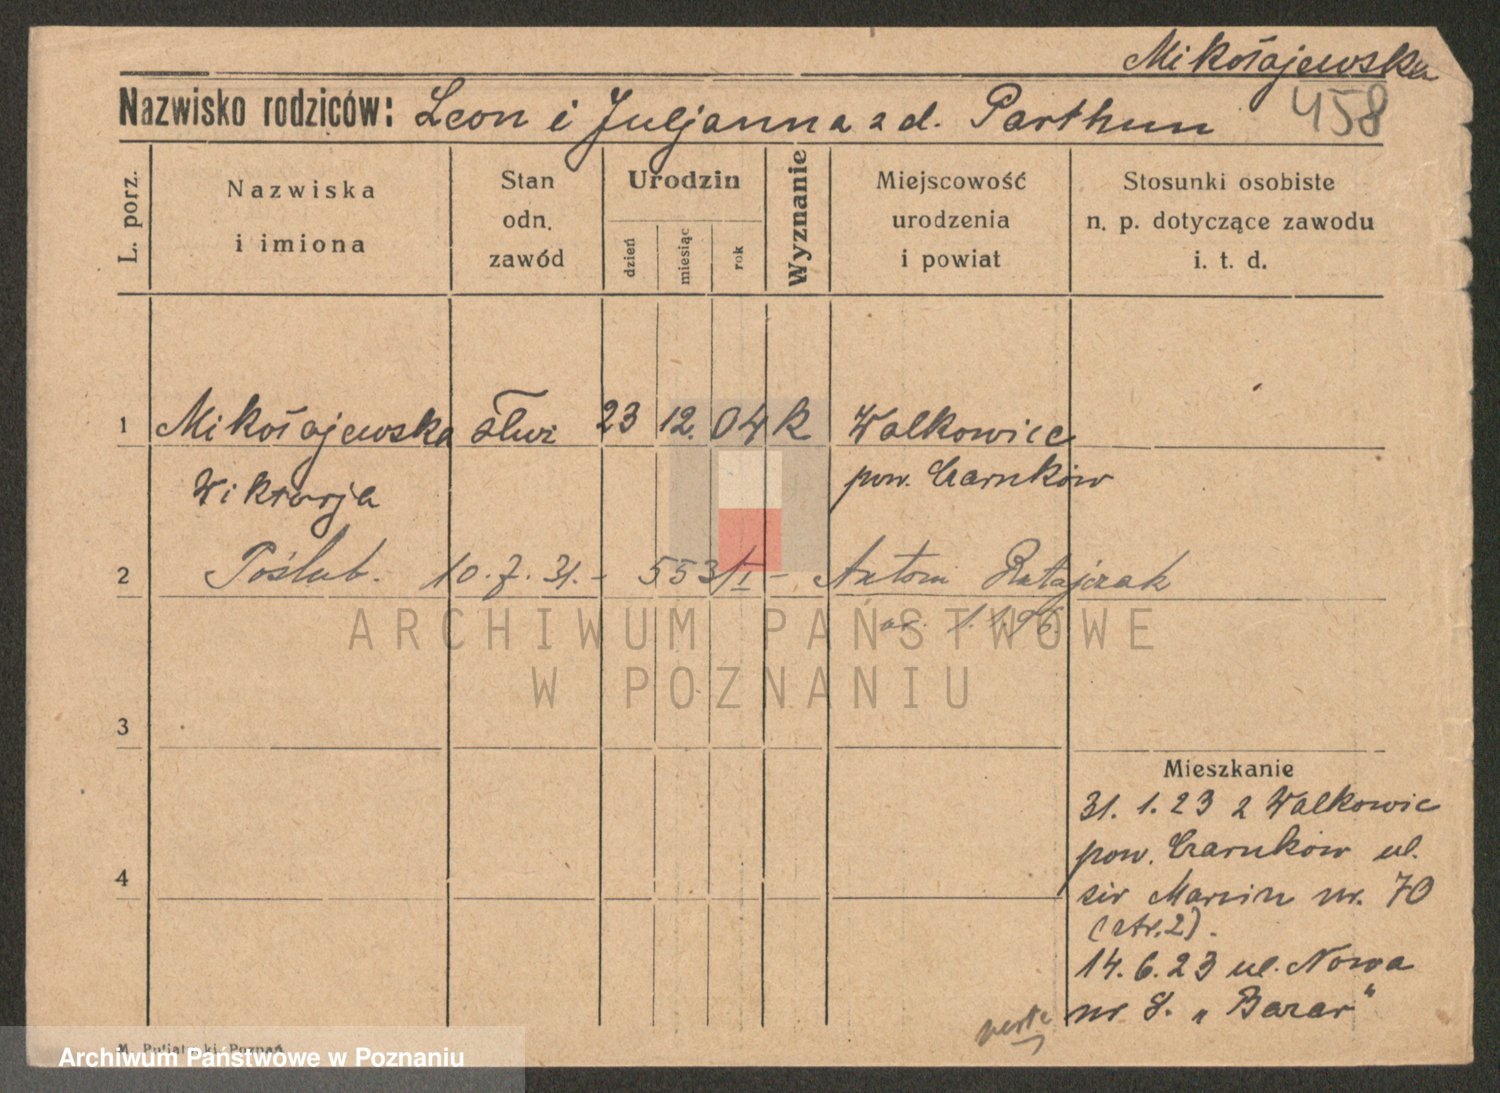 Mikołajewska
Nazwisko rodziców: Leon i Juljanna z d. Parthun 458
L. porz.
Nazwiska
i imiona
Stan
odn.
zawód
Urodzin
dzień
miesiąc
rok
Wyznanie
Miejscowość
urodzenia
i powiat
Stosunki osobiste
n. p. dotyczące zawodu
i. t. d.
1 Mikołajewska służ 23 12. 04 k Walkowice
Wiktorja pow. Czarnków
2 Poślub. 10. 7. 31. - 553/I - Antoni Ratajczak
1.1.96.
ARCHIWUM PAŃSTWOWE
W POZNANIU
3
Mieszkanie
31. 1. 23 z Walkowic
pow. Czarnków ul.
4
św Marcin nr. 70
(str. 2).
14. 6. 23 ul. Nowa
nr 8. „Bazar"
verte
Poznań
Archiwum Państwowe w Poznaniu